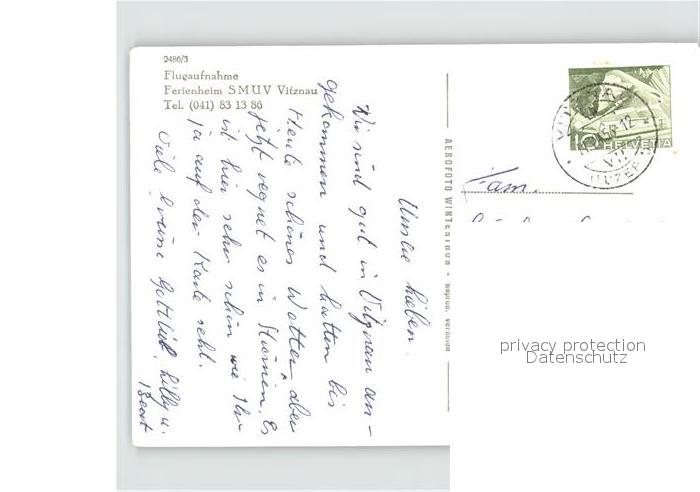 2486/3
Flugaufnahme
Ferienheim SMUV Vitznau
Tel. (041) 83 13 86
Unsere Lieben.
Wir sind gut in Vitznau an-
gekommen und hatten bis
Heute schönes Wetter, aber
jetzt regnet es in Strömen. Es
ist hier sehr schön wie Ihr
ja auf der Karte seht.
Viele Grüsse Gottlieb, Lilly u.
Beat
AEROFOTO WINTERTHUR - Reprod. verboten
HELVETIA
10
Fam.
privacy protection
Datenschutz